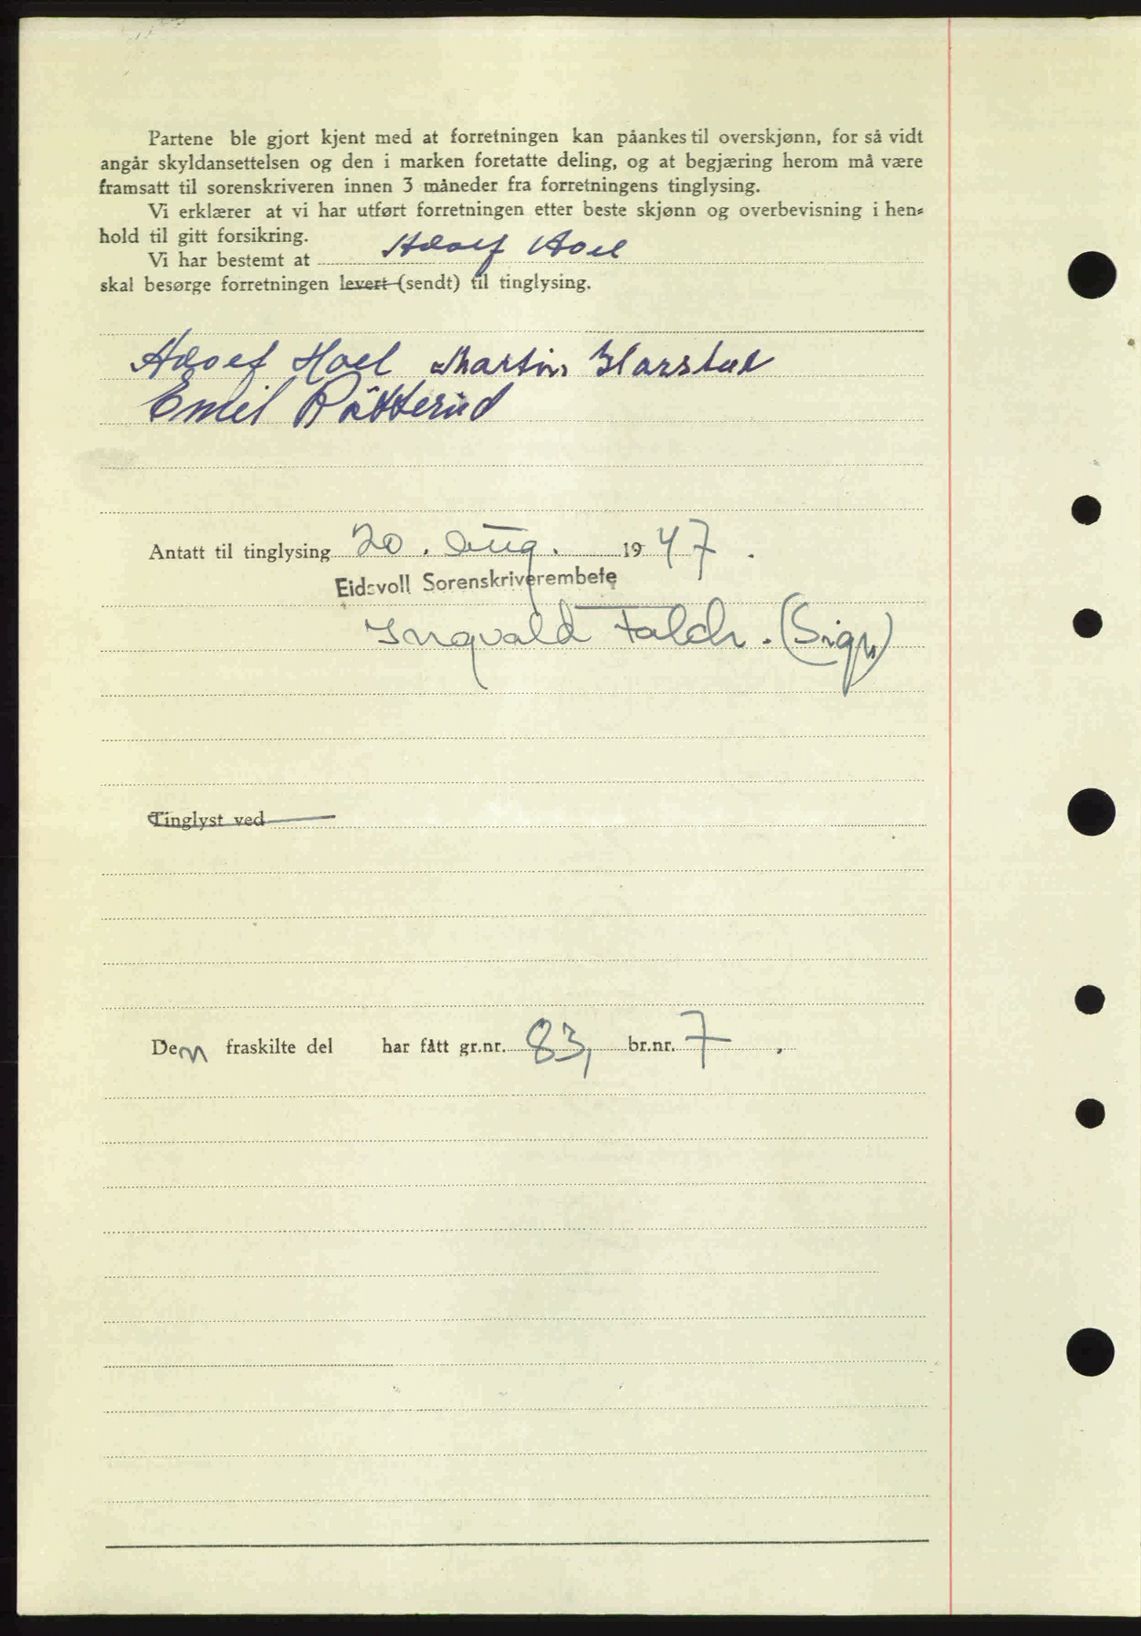 Partene ble gjort kjent med at forretningen kan påankes til overskjønn, for så vidt
angår skyldansettelsen og den i marken foretatte deling, og at begjæring herom må være
framsatt til sorenskriveren innen 3 måneder fra forretningens tinglysing.
Vi erklærer at vi har utført forretningen etter beste skjønn og overbevisning i hen-
hold til gitt forsikring.
Vi har bestemt at Adolf Hoel
skal besørge forretningen levert (sendt) til tinglysing.
Adolf Hoel Martin Harstad
Emil Råtterud
Antatt til tinglysing 20. Aug. 1947.
Eidsvoll Sorenskriverembete
Ingvald Falch. (Sign)
Tinglyst ved
Den fraskilte del har fått gr.nr. 83, br.nr. 7,